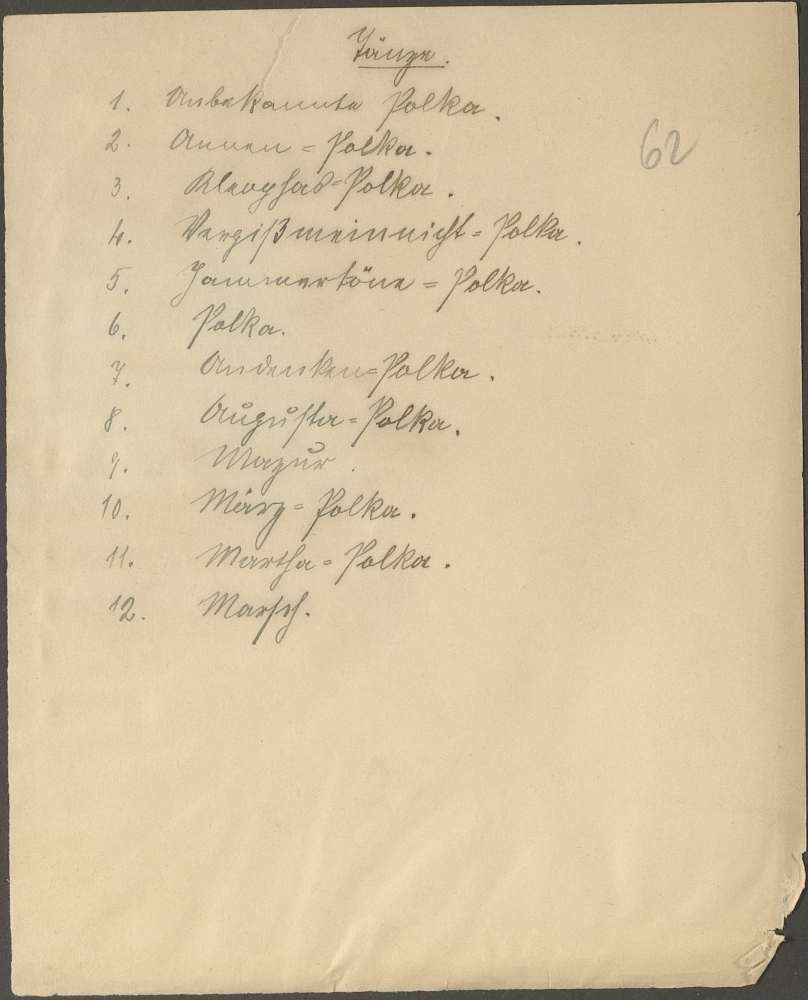 Tänze.
1. Unbekannte Polka.
2. Annen=Polka.
62
3. Kleophas=Polka.
4. Vergißmeinnicht=Polka.
5. Jammertöne=Polka.
6. Polka.
7. Andenken=Polka.
8. Augusta=Polka.
9. Mazur.
10. März=Polka.
11. Martha=Polka.
12. Marsch.